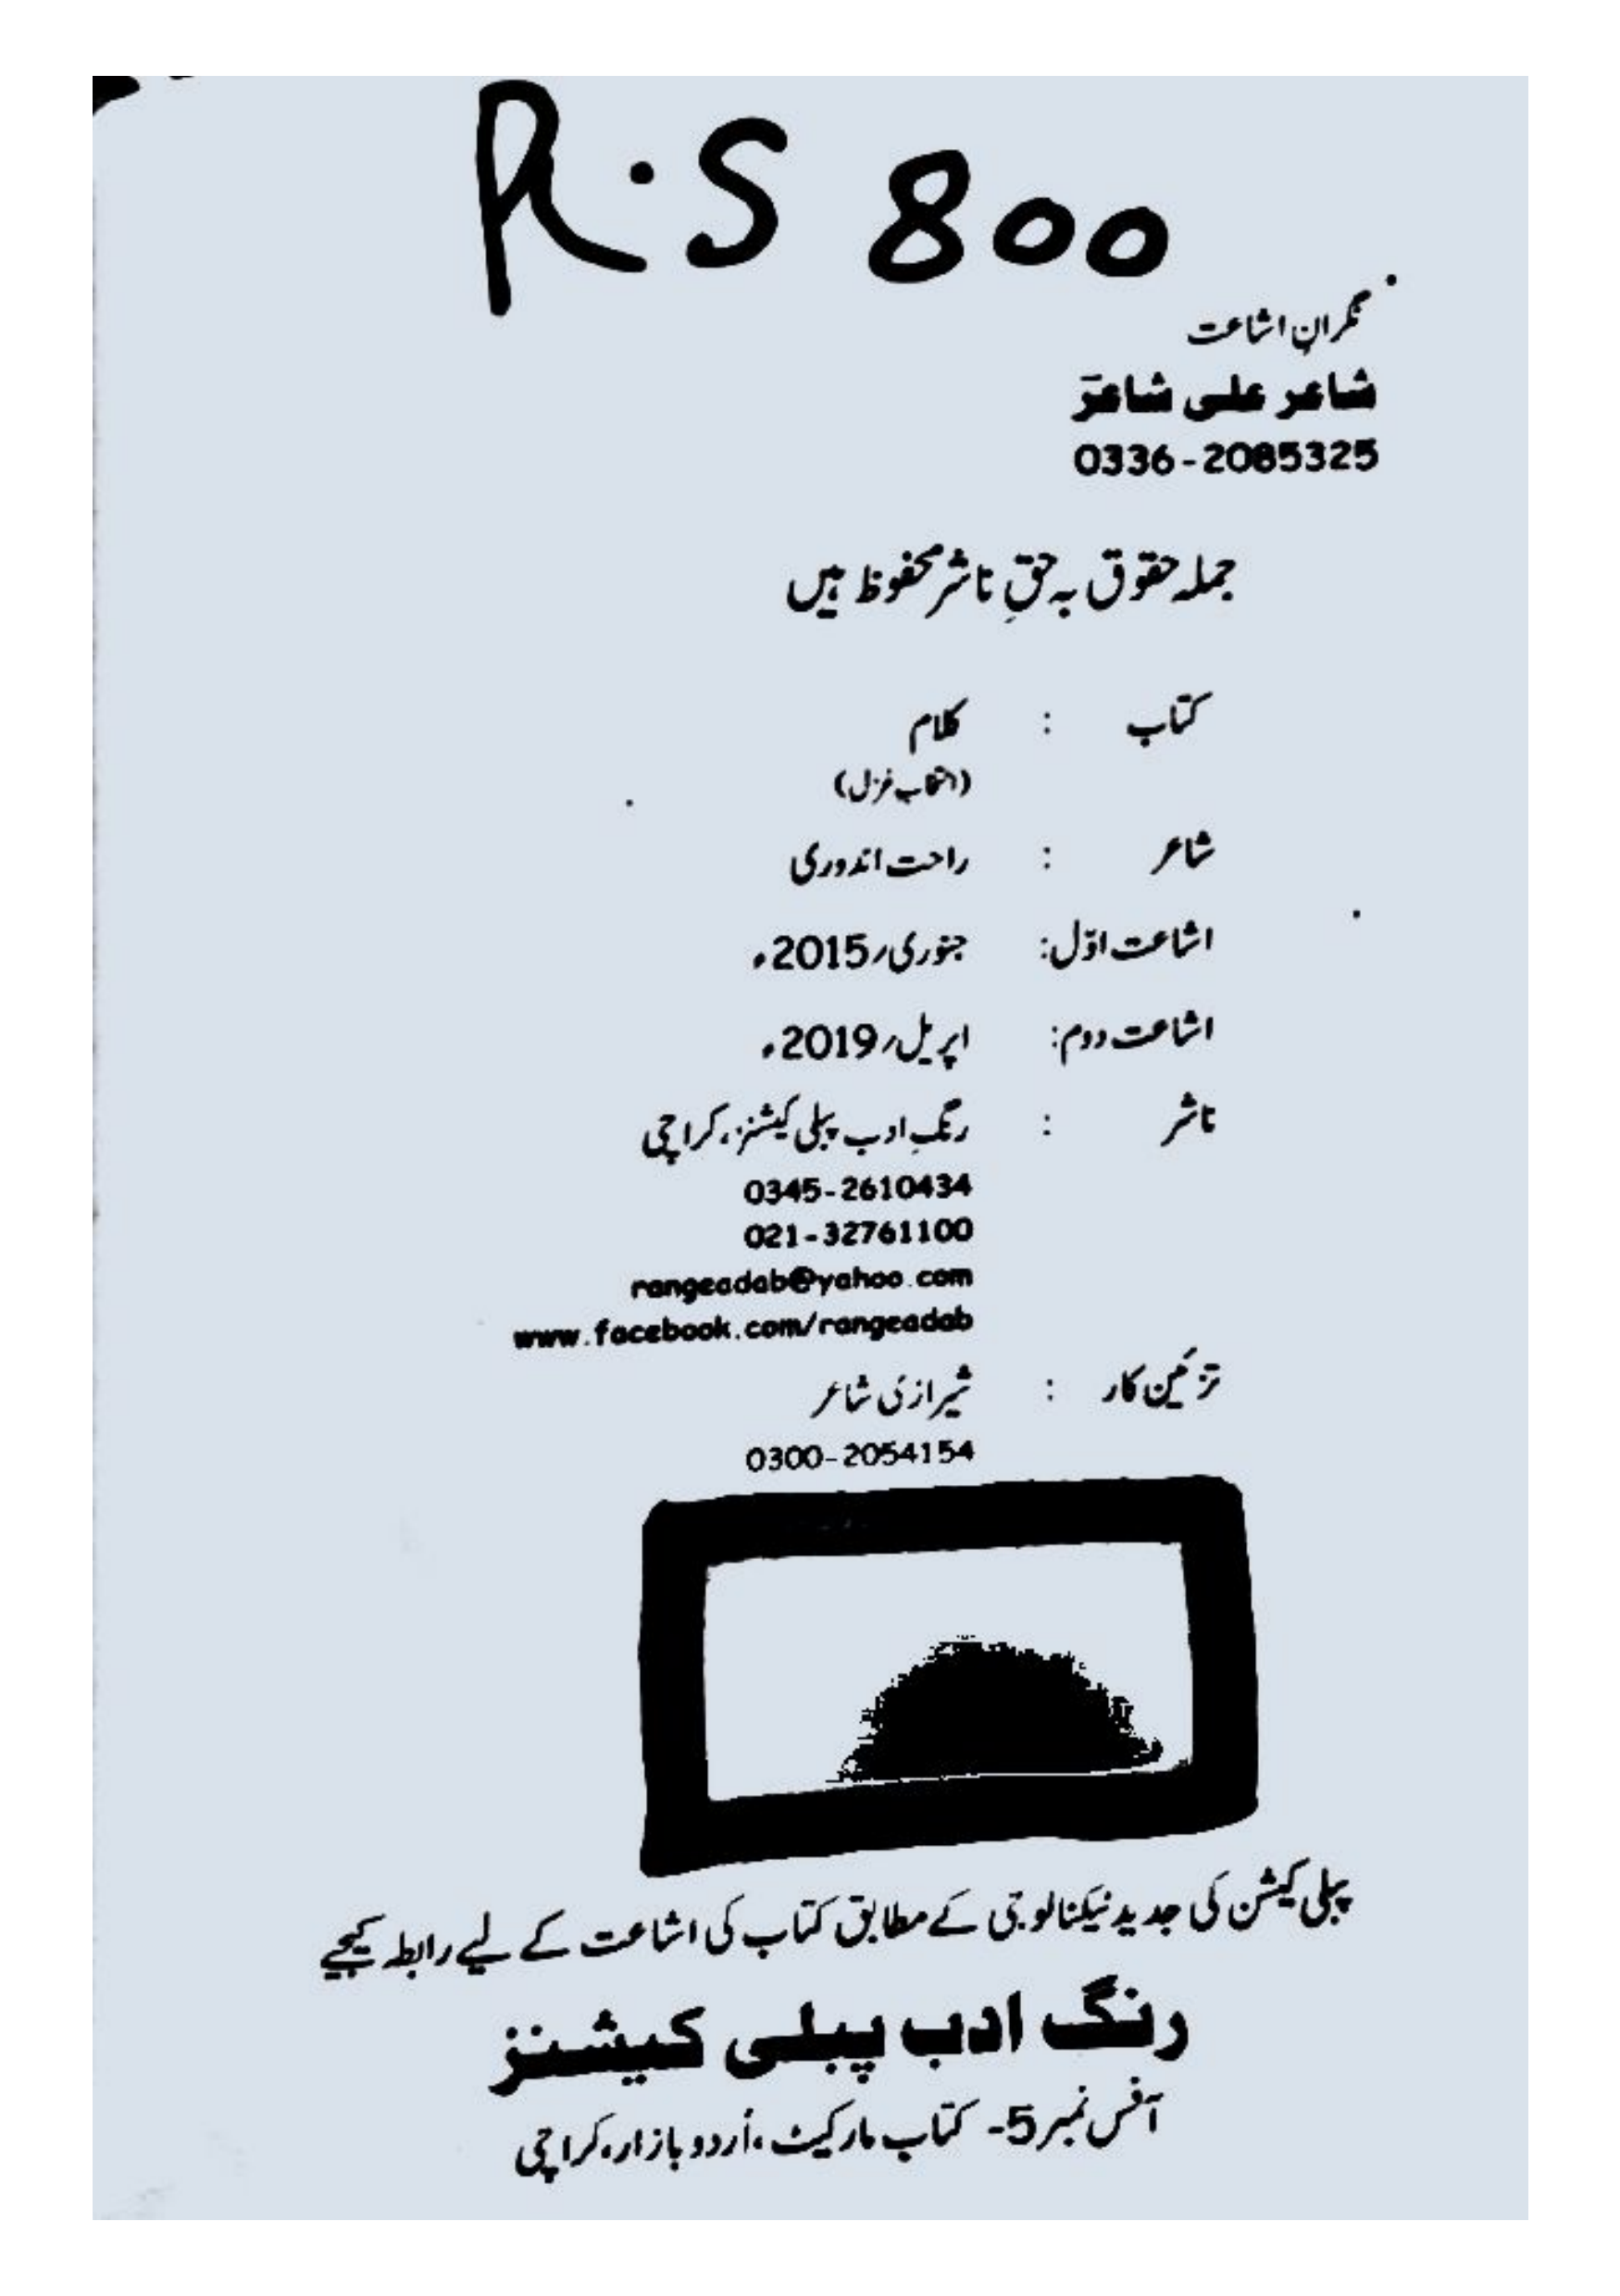 R.S 800
نگرانِ اشاعت
شاعر علی شاعرؔ
0336-2085325
جملہ حقوق بہ حقِ ناشر محفوظ ہیں
کتاب : کلام
(انتخابِ غزل)
شاعر : راحت اندوری
اشاعت اوّل: جنوری؍2015ء
اشاعت دوم: اپریل؍2019ء
ناشر : رنگِ ادب پبلی کیشنز، کراچی
0345-2610434
021-32761100
rangeadab@yahoo.com
www.facebook.com/rangeadab
تزئین کار : شیرازی شاعر
0300-2054154
پبلی کیشن کی جدید ٹیکنالوجی کے مطابق کتاب کی اشاعت کے لیے رابطہ کیجیے
رنگ ادب پبلی کیشنز
آفس نمبر 5- کتاب مارکیٹ، اُردو بازار، کراچی